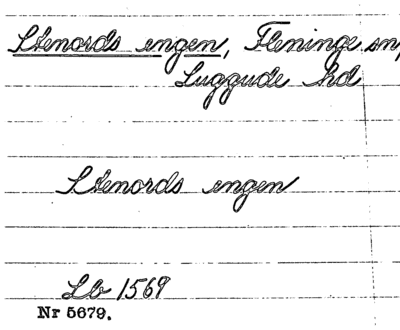 Stenords engen, Fleninge sn,
Luggude hd
Stenords engen
Lb 1569
Nr 5679.